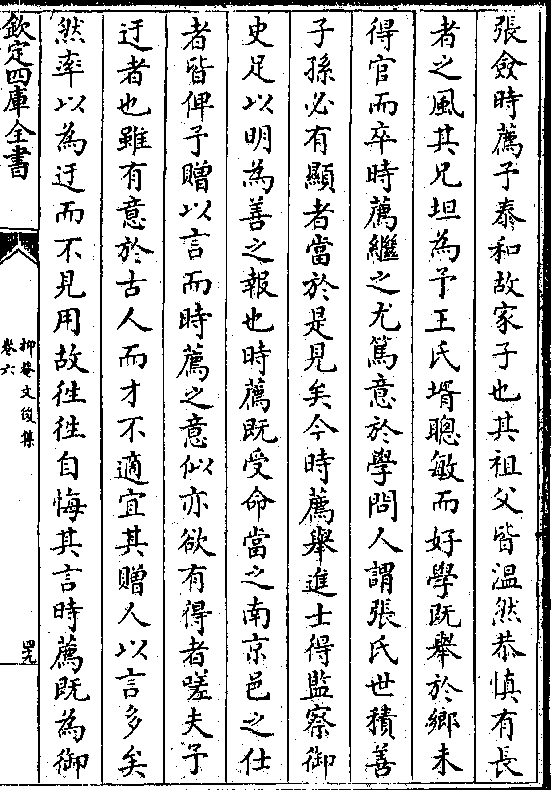 張僉時薦子泰和故家子也其祖父皆温然恭慎有長
者之風其兄坦為予王氏壻聰敏而好學既舉於鄉未
得官而卒時薦繼之尤篤意於學問人謂張氏世積善
子孫必有顯者當於是見矣今時薦舉進士得監察御
史足以明為善之報也時薦既受命當之南京邑之仕
者皆俾予贈以言而時薦之意似亦欲有得者嗟夫予
迂者也雖有意於古人而才不適宜其贈人以言多矣
然率以為迂而不見用故徃徃自悔其言時薦既為御
欽定四庫全書
抑菴文後集
卷六
四九